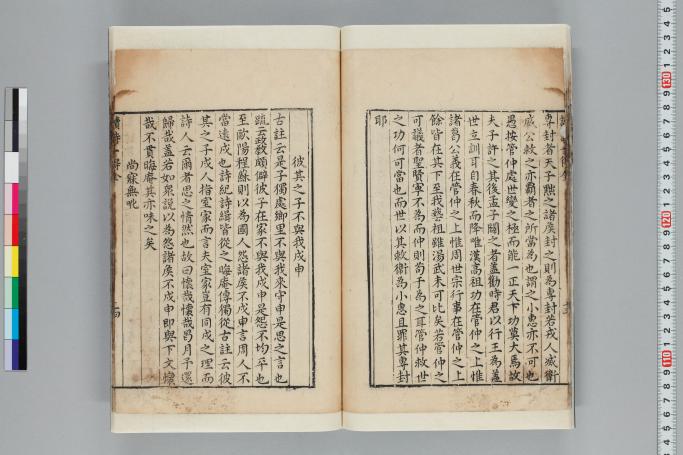 專封者天子黜之諸矦封之則為專封若戎人滅衛
威公救之亦霸者之所當為也謂之小惠亦不可也
愚按管仲處世變之極而能一正天下功莫大焉故
夫子許之其後孟子闢之者蓋勸時君以行王為蓋
世立訓耳自春秋而降唯漢高祖功在管仲之上惟
諸葛公義在管仲之上惟周世宗行事在管仲之上
餘皆在其下至我藝祖雖湯武未可比矣若管仲之
可議者聖賢寧不為而仲則苟子為之耳管仲救世
之功何可當也而世以其救衛為小惠且罪其專封
耶
彼其之子不與我戍申
古註云是子獨處鄉里不與我來守申是思之言也
疏云政教頗僻彼子在家不與我戍申是怨不均平也
至歐陽程蘇則以為國人怨諸矦不戍申言周人不
當遠戍也詩紀詩緝皆從之晦庵傳獨從古註云彼
其之子戍人指室家而言夫室家豈有同戍之理而
詩人云爾者思之情然也故曰懷哉懷哉曷月予還
歸哉蓋若如衆說以為怨諸矦不戍申即與下文懷
哉不貫晦庵其亦味之矣
尚寐無吪